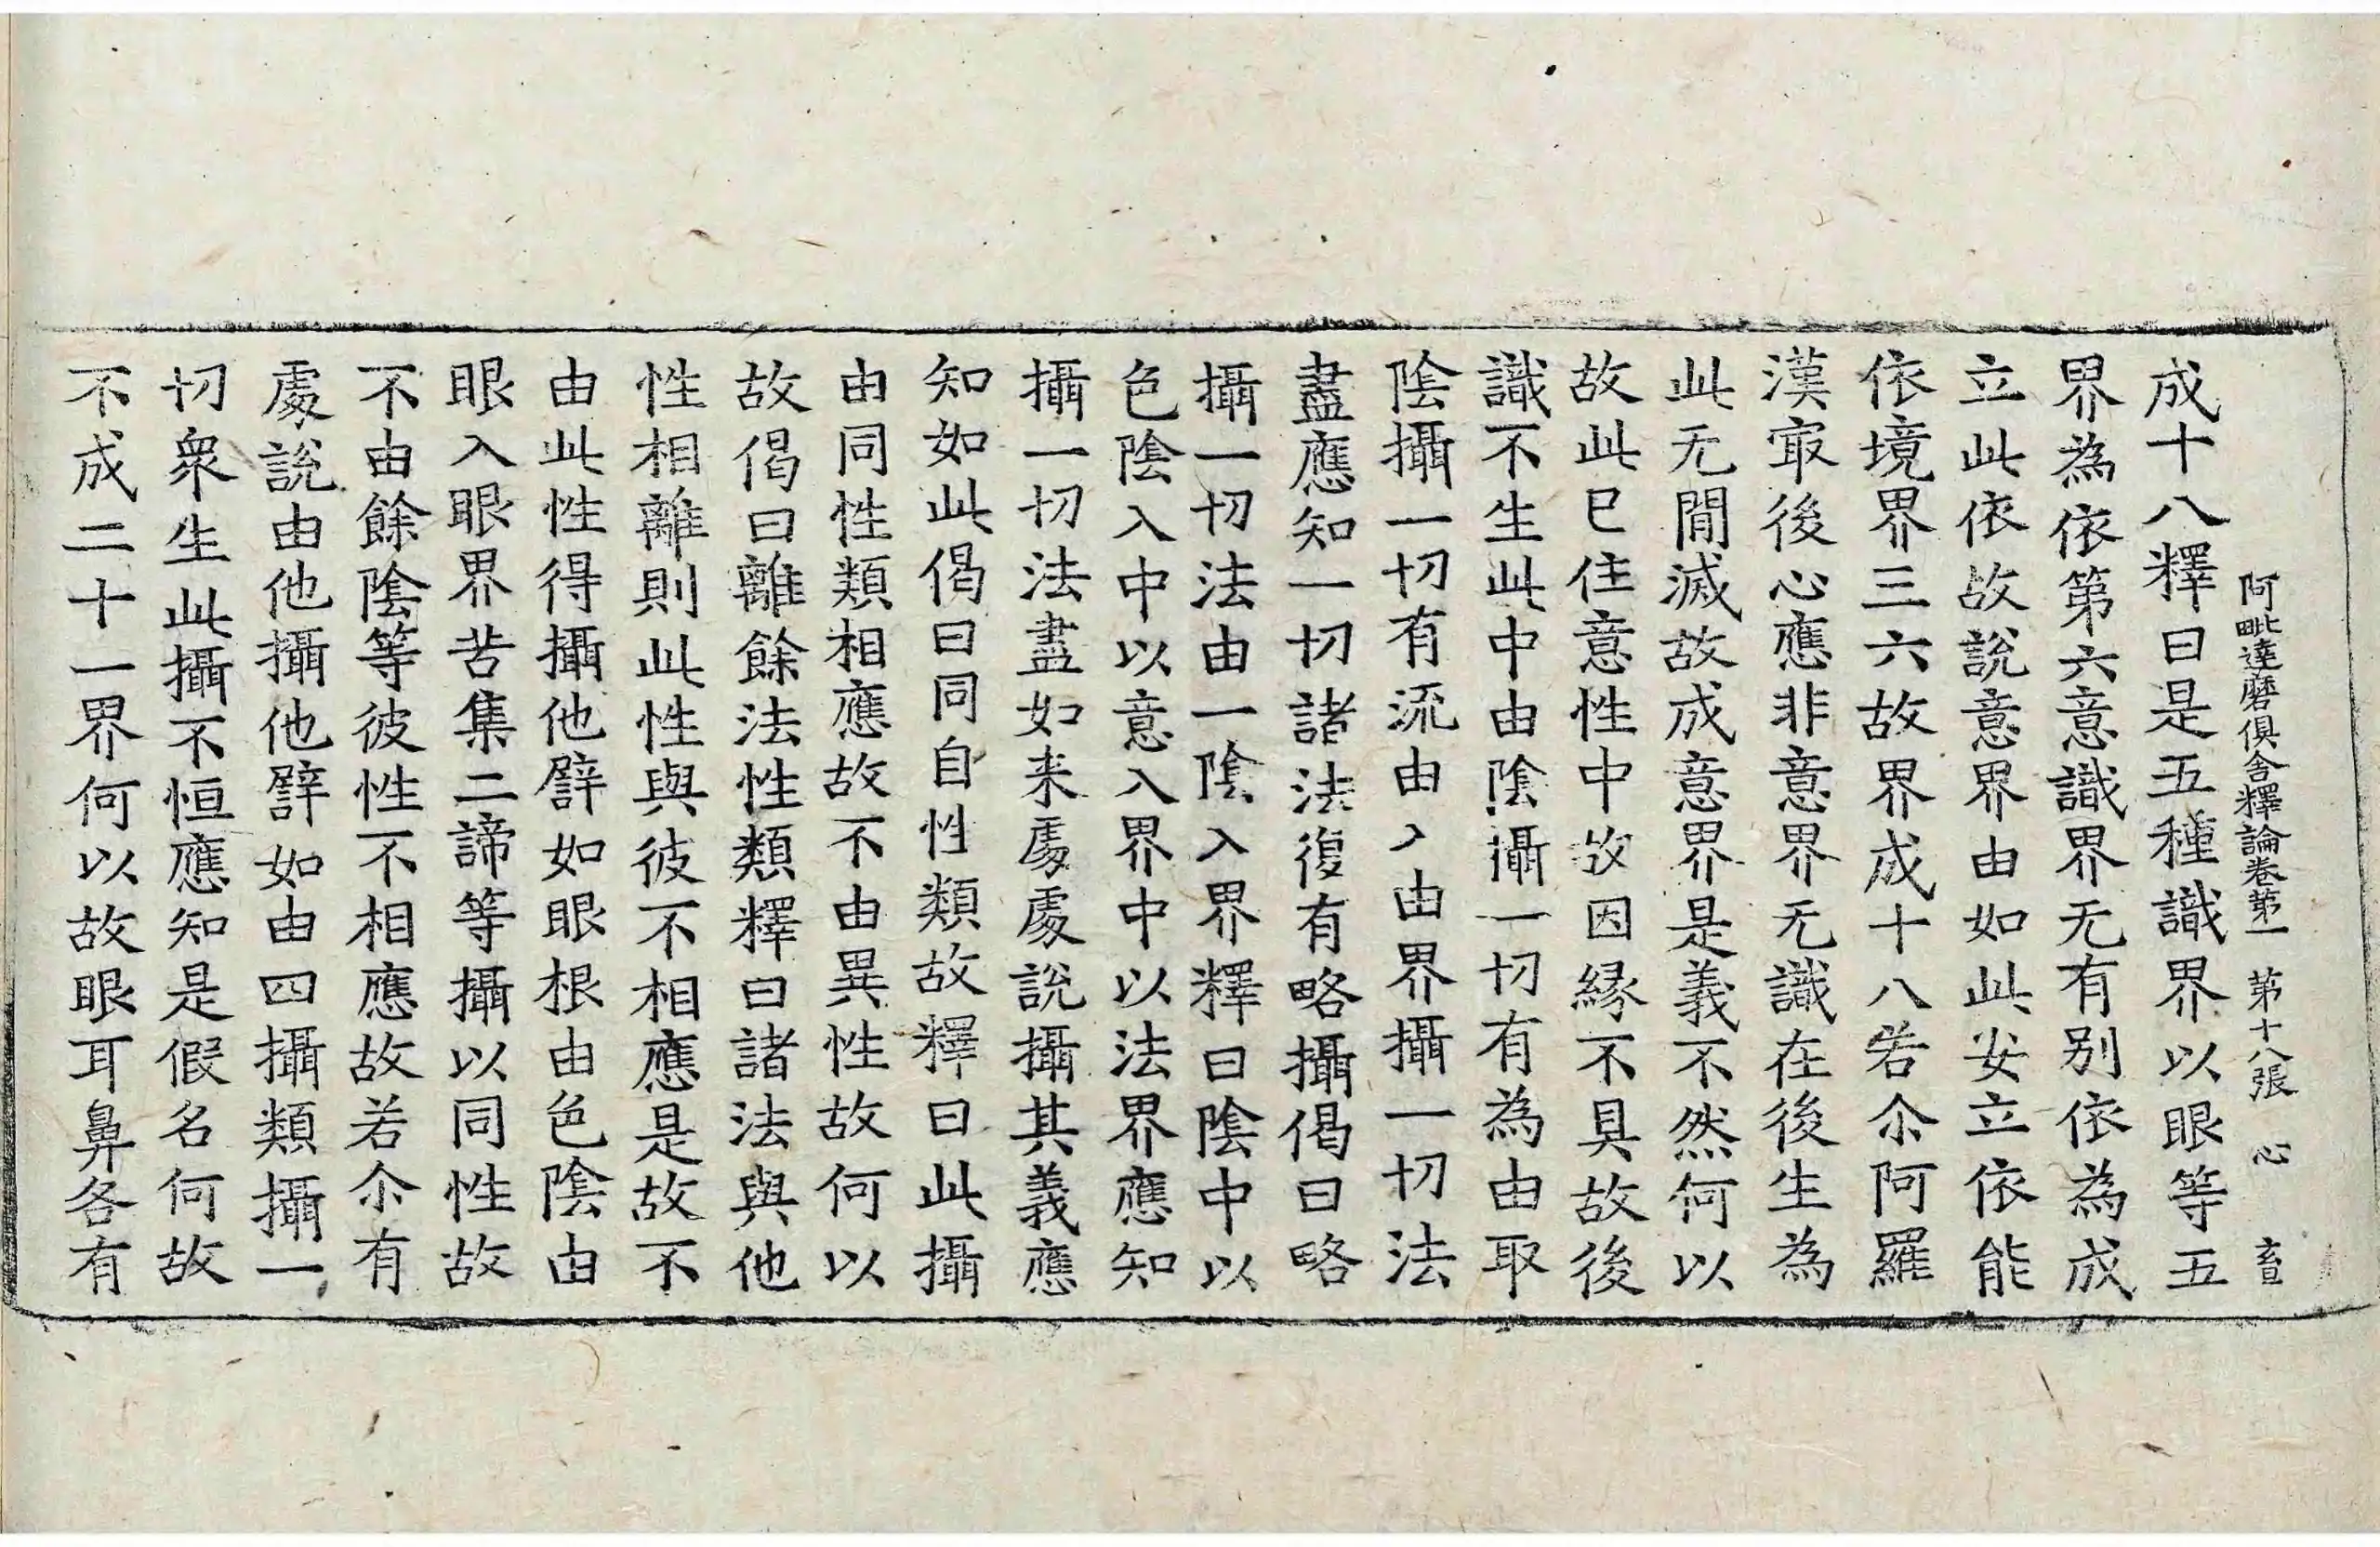 阿毗達磨俱舍釋論卷第一 第十八張 心 畜
成十八釋曰是五種識界以眼等五
界為依第六意識界无有別依為成
立此依故說意界由如此安立依能
依境界三六故界成十八若尒阿羅
漢冣後心應非意界无識在後生為
此无閒滅故成意界是義不然何以
故此已住意性中故因緣不具故後
識不生此中由陰攝一切有為由取
陰攝一切有流由入由界攝一切法
盡應知一切諸法復有略攝偈曰略
攝一切法由一陰入界釋曰陰中以
色陰入中以意入界中以法界應知
攝一切法盡如来處處說攝其義應
知如此偈曰同自性類故釋曰此攝
由同性類相應故不由異性故何以
故偈曰離餘法性類釋曰諸法與他
性相離則此性與彼不相應是故不
由此性得攝他譬如眼根由色陰由
眼入眼界苦集二諦等攝以同性故
不由餘陰等彼性不相應故若尒有
處說由他攝他譬如由四攝類攝一
切衆生此攝不恒應知是假名何故
不成二十一界何以故眼耳鼻各有